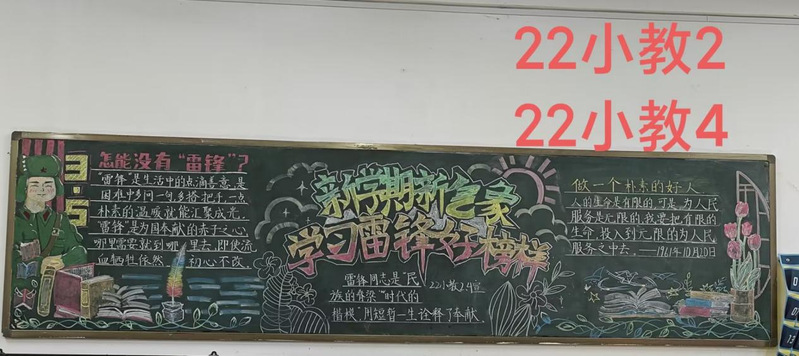 22小教2
22小教4
3.5
怎能没有“雷锋”?
“雷锋”是生活中的点滴善意,是
困难中多问一句多搭把手,一点
朴素的温暖就能汇聚成光.
雷锋”是为国奉献的赤子之心
哪里需要就到哪里去,即使流
血牺牲依然 初心不改.
新学期新气象
学习雷锋好榜样
雷锋同志是“民
族的脊梁”时代的
楷模”,用短暂一生诠释了奉献
22小教2.4宣
做一个朴素的好人
人的生命是有限的,可是,为人民
服务是无限的,我要把有限的
生命,投入到无限的为人民
服务之中去.——1961年10月20日